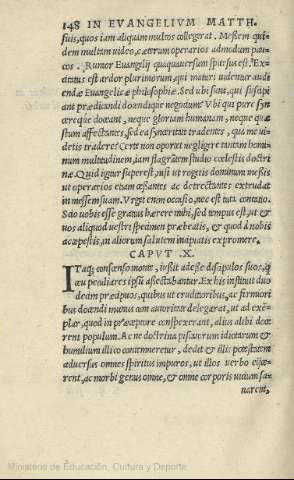 148 IN EVANGELIVM MATTH.
suis, quos iam aliquàm multos collegerat. Messem qui-
dem multam video, cæterum operarios admodum pau-
cos. Rumor Euangelij quaquauersum sparsus est. Ex-
citatus est ardor plurimorum, qui maturi uidentur audi-
endæ Euangelicæ philosophiæ. Sed ubi sunt, qui suscipi
ant prædicandi docendique negocium? Vbi qui pure syn
cereque doceant, neque gloriam humanam, neque quæ
stum affectantes, sed ea synceriter tradentes, quæ me ui-
detis tradere? Certe non oportet negligere tantam homi
num multitudinem, iam flagrātem studio cœlestis doctri
næ. Quid igitur superest, nisi ut rogetis dominum messis
ut operarios etiam cessantes ac detrectantes extrudat
in messem suam. Vrget enim occasio, nec est tuta cunctatio.
Scio uobis esse grauius hærere mihi, sed tempus est, ut &
uos aliquod uestri specimen præbeatis, & quod à nobis
accepistis, in aliorum salutem incipiatis expromere.
CAPVT .X.
ITaque conscenso monte, iussit adesse discipulos suos, q
æu peculiares ipsū assectabantur. Ex his instituit duo
decim præcipuos, quibus ut eruditioribus, ac firmiori
bus docendi munus cum autoritate delegaret, ut ad exē-
plar, quod in præceptore conspexerant, alius alibi doce
rent populum. Ac ne doctrina piscatorum idiotarum &
humilium illico contemneretur, dedit & illis potestatem
aduersus omnes spiritus impuros, ut illos uerbo eijce-
rent, ac morbi genus omne, & omne corporis uicium sa-
narent,
Ministerio de Educación, Cultura y Deporte